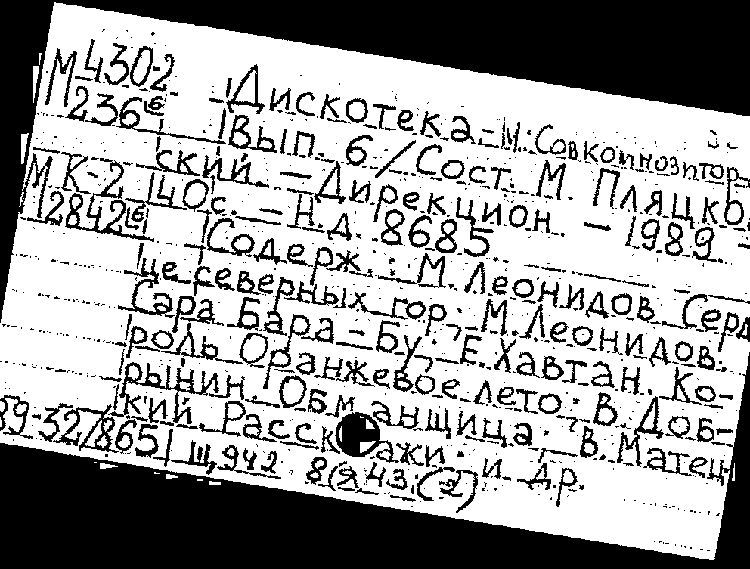 М 4302
236 6
Дискотека - М: Совкомпозитор
Вып. 6 / Сост. М. Пляцков-
ский. - Дирекцион. - 1989 -
МК-2
М2842 6
40с. - Н.д. 8685
Содерж.: М. Леонидов. Серд
це северных гор; М. Леонидов.
Сара Бара-Бу; Е. Хавтан. Ко-
роль Оранжевое лето; В. Доб-
рынин. Обманщица; В. Матец-
кий. Расскажи; и др.
89-32/865 Щ942 8(943(2)